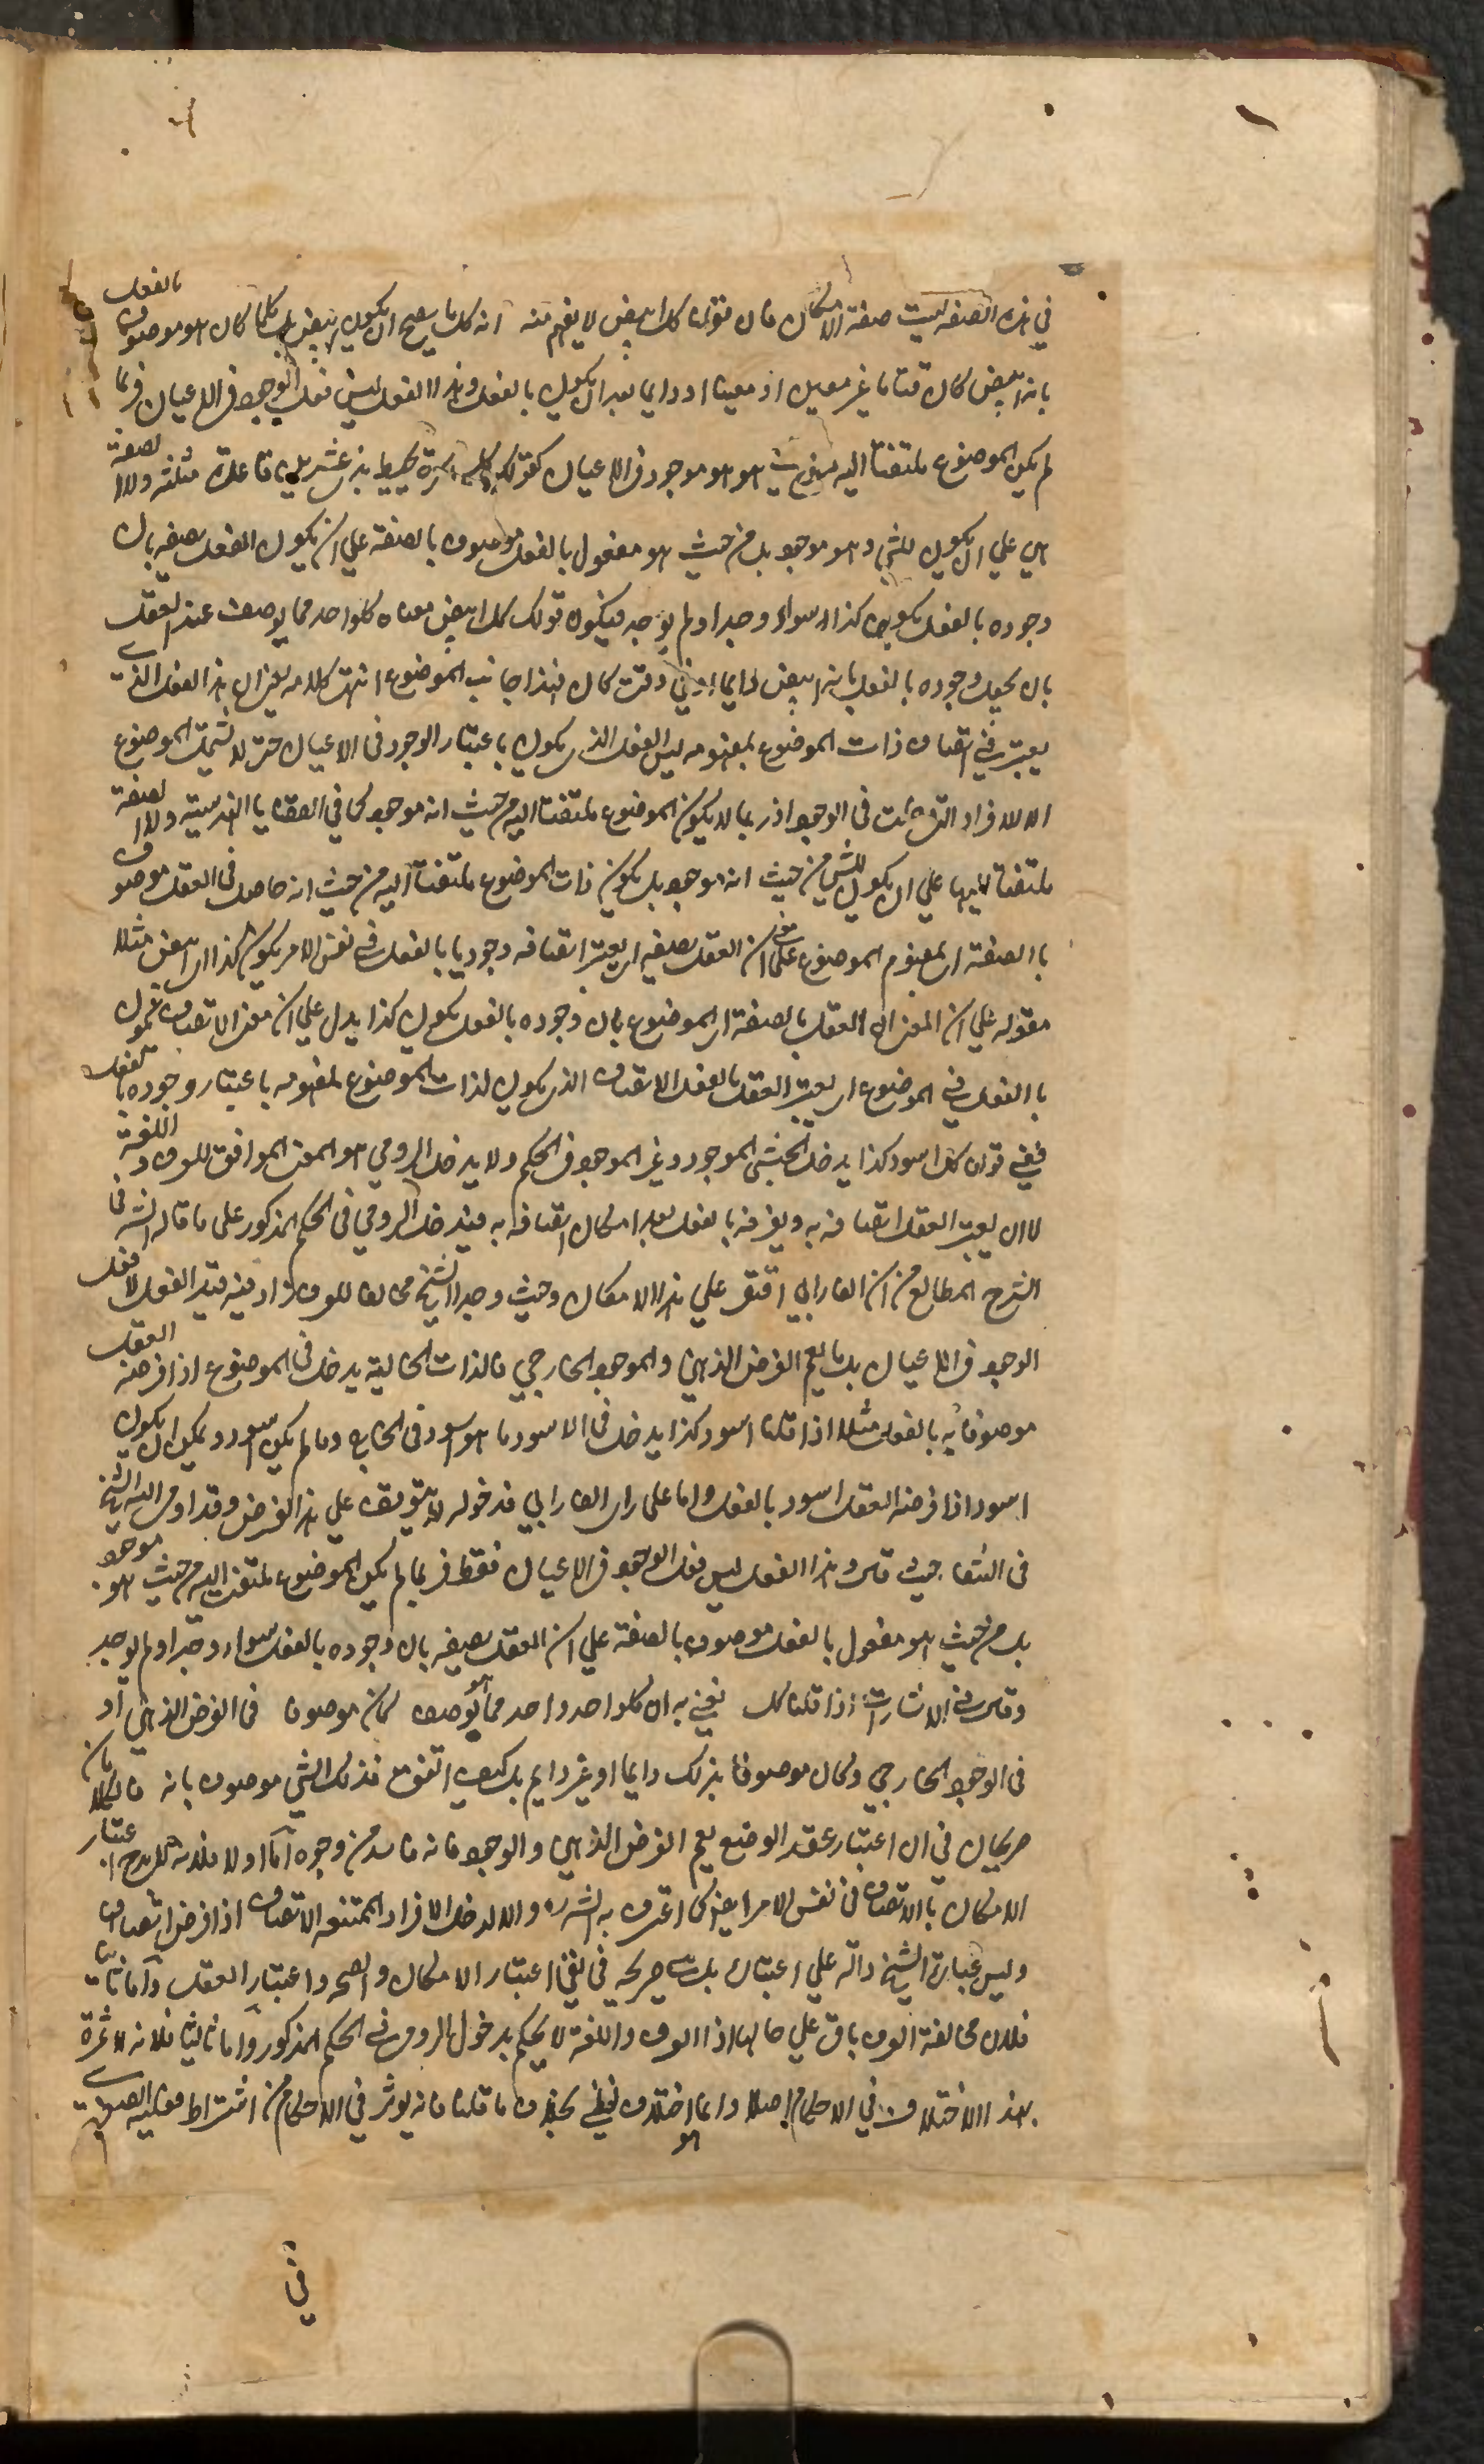 في هذه الصفة ليست صفة الامكان فان قولنا كل ابيض لا يفهم منه انه كل ما يصح ان يكون ابيض بل كلما كان هو موصوفا بالفعل
بانه ابيض كان وقتا ما غير معين او معينا او دايما بعد ان يكون بالفعل وهذا الفعل ليس فعل الوجود في الاعيان فربما
لم يكن الموضوع ملتفتا اليه من حيث هو موجود في الاعيان كقولك كل كرة يحيط بذي عشرين قاعدة مثلثة ولا الصفة
هي علي ان يكون للشي وهو موجود بل من حيث هو معقول بالفعل موصوف بالصفة علي ان يكون العقل يصفه بان
وجوده بالفعل يكون كذا سواء وجد او لم يوجد فيكون قولك كل ابيض معناه كلواحد مما يوصف عند العقل
بان يجعل وجوده بالفعل بانه ابيض دايما او في وقت كان فهذا جانب الموضوع انتهت كلامه يعني ان هذا الفعل الذي
يعتبر في اتصاف ذات الموضوع بمفهومه ليس الفعل الذي يكون باعتبار الوجود في الاعيان حتى لا يشمل الموضوع
الا الافراد التي في الوجود اذ ربما لا يكون الموضوع ملتفتا اليه من حيث انه موجود كما في القضايا الفرضية ولا الصفة
ملتفتا اليها علي ان يكون للشي من حيث انه موجود بل يكون ذات الموضوع ملتفتا اليه من حيث انه حاصل في العقل موصوف
بالصفة اي بمفهوم الموضوع علي معني ان العقل يصفه اي يعتبر اتصافه وجوديا بالفعل في نفس الامر يكون كذا اي ابيض مثلا
فقوله علي ان المعني ان العقل بالصفة اي الموضوع بان وجوده بالفعل يكون كذا يدل علي ان معنى الاتصاف
بالفعل في الموضوع ان يعتبر العقل بالفعل الاتصاف الذي يكون لذات الموضوع لمفهومه باعتبار وجوده بالفعل
ففي قولنا كل اسود كذا يدخل الحبشي الموجود وغير الموجود في الحكم ولا يدخل الرومي هو المعنى الموافق للعرف و اللغة
لا ان يعتبر العقل اتصافه به ويفرضه بالفعل بعد امكان اتصافه به فيدخل الرومي في الحكم المذكور على ما قاله الشه في
الشرح المطالع من ان الفارابي اقتصر علي هذا الامكان وحيث وجد الشيخ مخالفا للعرف زاد فيه قيد الفعل لا فعل
الوجود في الاعيان بل ما يعم الفرض الذهني والموجود الخارجي فالذات الخالية يدخل في الموضوع اذا فرضه العقل
موصوفا به بالفعل مثلا اذا قلنا اسود كذا يدخل في الاسود ما هو اسود في الخارج وما لم يكن اسود ويمكن ان يكون
اسود اذا فرضه العقل اسود بالفعل واما على راي الفارابي فدخوله لا يتوقف علي هذا الفرض وقد اومي اليه الشيخ
في الشفا حيث قال وهذا الفعل ليس فعل الوجود في الاعيان فقط فربما لم يكن الموضوع ملتفت اليه من حيث هو موجود
بل من حيث هو معقول بالفعل موصوف بالصفة علي ان العقل يصفه بان وجوده بالفعل سواء وجد او لم يوجد
وقال في الاشارات اذا قلنا كل نعني به ان كلواحد واحد مما يوصف كان موصوفا في الفرض الذهني او
في الوجود الخارجي وكان موصوفا بذلك دايما او غير دايم بل كيف اتفق فذلك الشي موصوف بانه فالكلامان
صريحان في ان اعتبار عقد الوضع يعم الفرض الذهني والوجود فانه فاسد من وجوه اما اولا فلانه لا بد من اعتبار
الامكان بالاتصاف في نفس الامر ايضا كما اعترف به الشه والا لدخل الافراد الممتنعه الاتصاف اذا فرض اتصاف
وليس عبارة الشيخ دالة علي اعتبار بل صريحه في نفي اعتبار الامكان والصحه واعتبار العقل واما ثانيا
فلان مخالفة العرف باق علي حالها اذ العرف واللغة لا يحكم بدخول الرومي في الحكم المذكور واما ثالثا فلانه لا ثمرة
بهذا الاختلاف في الاحكام اصلا وانما هو اختلاف لفظي بخلاف ما قلنا فانه يوثر في الاحكام من اشتراط فعليه الصغرى
في